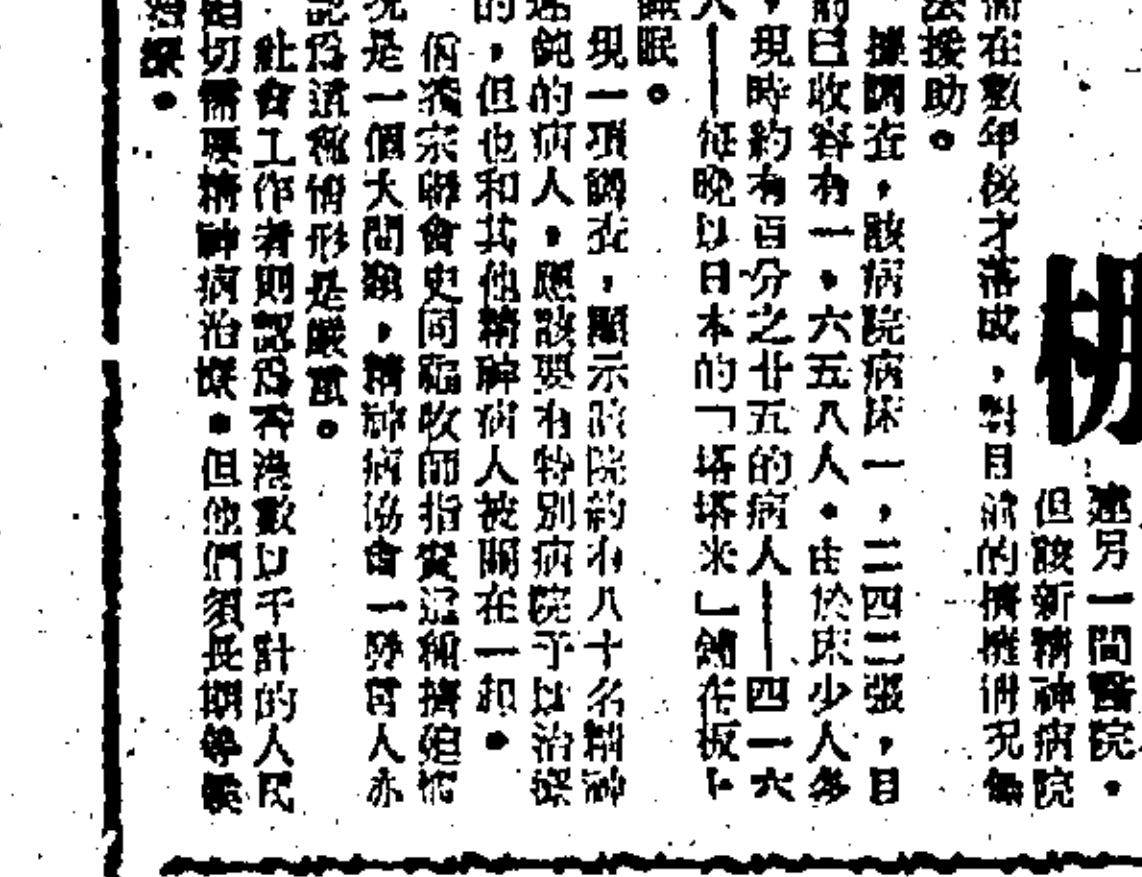 建另一間醫院。
但該新精神病院
需在數年後才落成,對目前的擠擁情況無
法援助。
據調查,該病院病床一,二四二張,目
前已收容有一,六五八人。由於床少人多
,現時約有百分之廿五的病人——四一六
人——每晚以日本的「塔塔米」鋪在板上
睡眠。
現一項調查,顯示該院約有八十名精神
的病人,應該要有特別病院予以治療
的,但也和其他精神病人被關在一起。
宗聯會史同福牧師指責這種擠迫情
況是一個大問題,精神病協會一發言人亦
認為這種情形是嚴重。
社會工作者則認為香港數以千計的人民
切需要精神病治療。但他們須長期等候
治療。